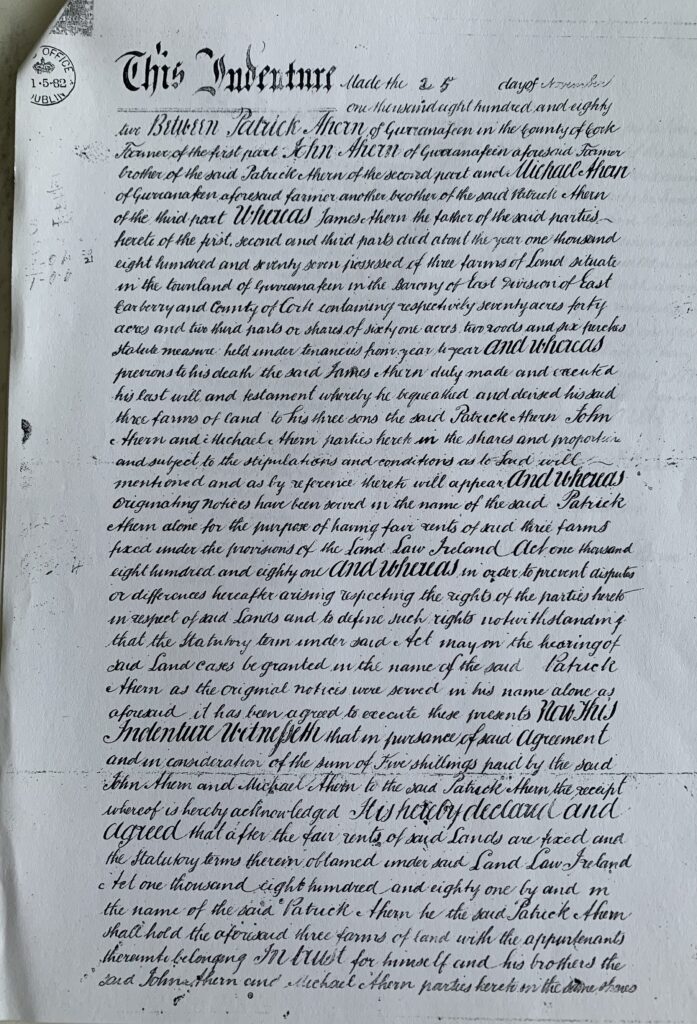 OFFICE
1·5·82
DUBLIN
This Indenture Made the 25 day of November
one thousand eight hundred and eighty
two Between Patrick Ahern of Gurranafeen in the County of Cork
Farmer of the first part John Ahern of Gurranafeen aforesaid Farmer
brother of the said Patrick Ahern of the second part and Michael Ahern
of Gurranafeen aforesaid farmer another brother of the said Patrick Ahern
of the third part Whereas James Ahern the father of the said parties
hereto of the first, second and third parts died about the year one thousand
eight hundred and seventy seven possessed of three farms of Land situate
in the townland of Gurranafeen in the Barony of East Division of East
Carberry and County of Cork containing respectively seventy acres forty
acres and two third parts or shares of sixty one acres two roods and six perches
statute measure held under tenancies from year to year and whereas
previous to his death the said James Ahern duly made and executed
his last will and testament whereby he bequeathed and devised his said
three farms of land to his three sons the said Patrick Ahern John
Ahern and Michael Ahern parties hereto in the shares and proportion
and subject to the stipulations and conditions as to said will
mentioned and as by reference thereto will appear and whereas
originating notices have been served in the name of the said Patrick
Ahern alone for the purpose of having fair rents of said three farms
fixed under the provisions of the Land Law Ireland Act one thousand
eight hundred and eighty one and whereas in order to prevent disputes
or differences hereafter arising respecting the rights of the parties hereto
in respect of said Lands and to define such rights notwithstanding
that the Statutory term under said Act may on the hearing of
said Land cases be granted in the name of the said Patrick
Ahern as the original notices were served in his name alone as
aforesaid it has been agreed to execute these presents Now This
Indenture Witnesseth that in pursance of said Agreement
and in consideration of the sum of Five shillings paid by the said
John Ahern and Michael Ahern to the said Patrick Ahern the receipt
whereof is hereby acknowledged It is hereby declared and
agreed that after the fair rents of said Lands are fixed and
the Statutory terms therein obtained under said Land Law Ireland
Act one thousand eight hundred and eighty one by and in
the name of the said Patrick Ahern he the said Patrick Ahern
shall hold the aforesaid three farms of land with the appurtenants
thereunto belonging In trust for himself and his brothers the
said John Ahern and Michael Ahern parties hereto in the same shares